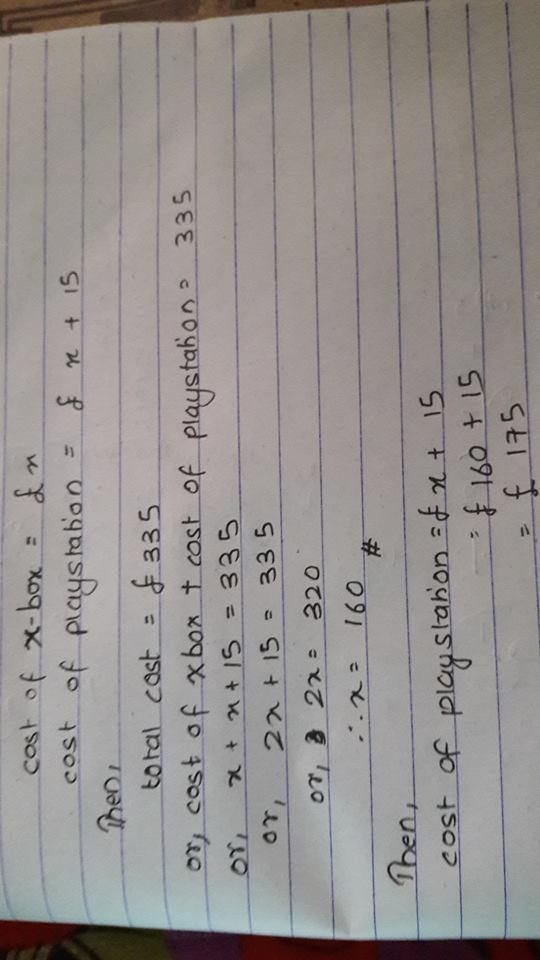 cost of x-box = £x
cost of playstation = £ x + 15
Then,
total cost = £ 335
or, cost of xbox + cost of playstation = 335
or, x + x + 15 = 335
or, 2x + 15 = 335
or, 2x = 320
∴ x = 160 #
Then,
cost of playstation = £ x + 15
= £ 160 + 15
= £ 175